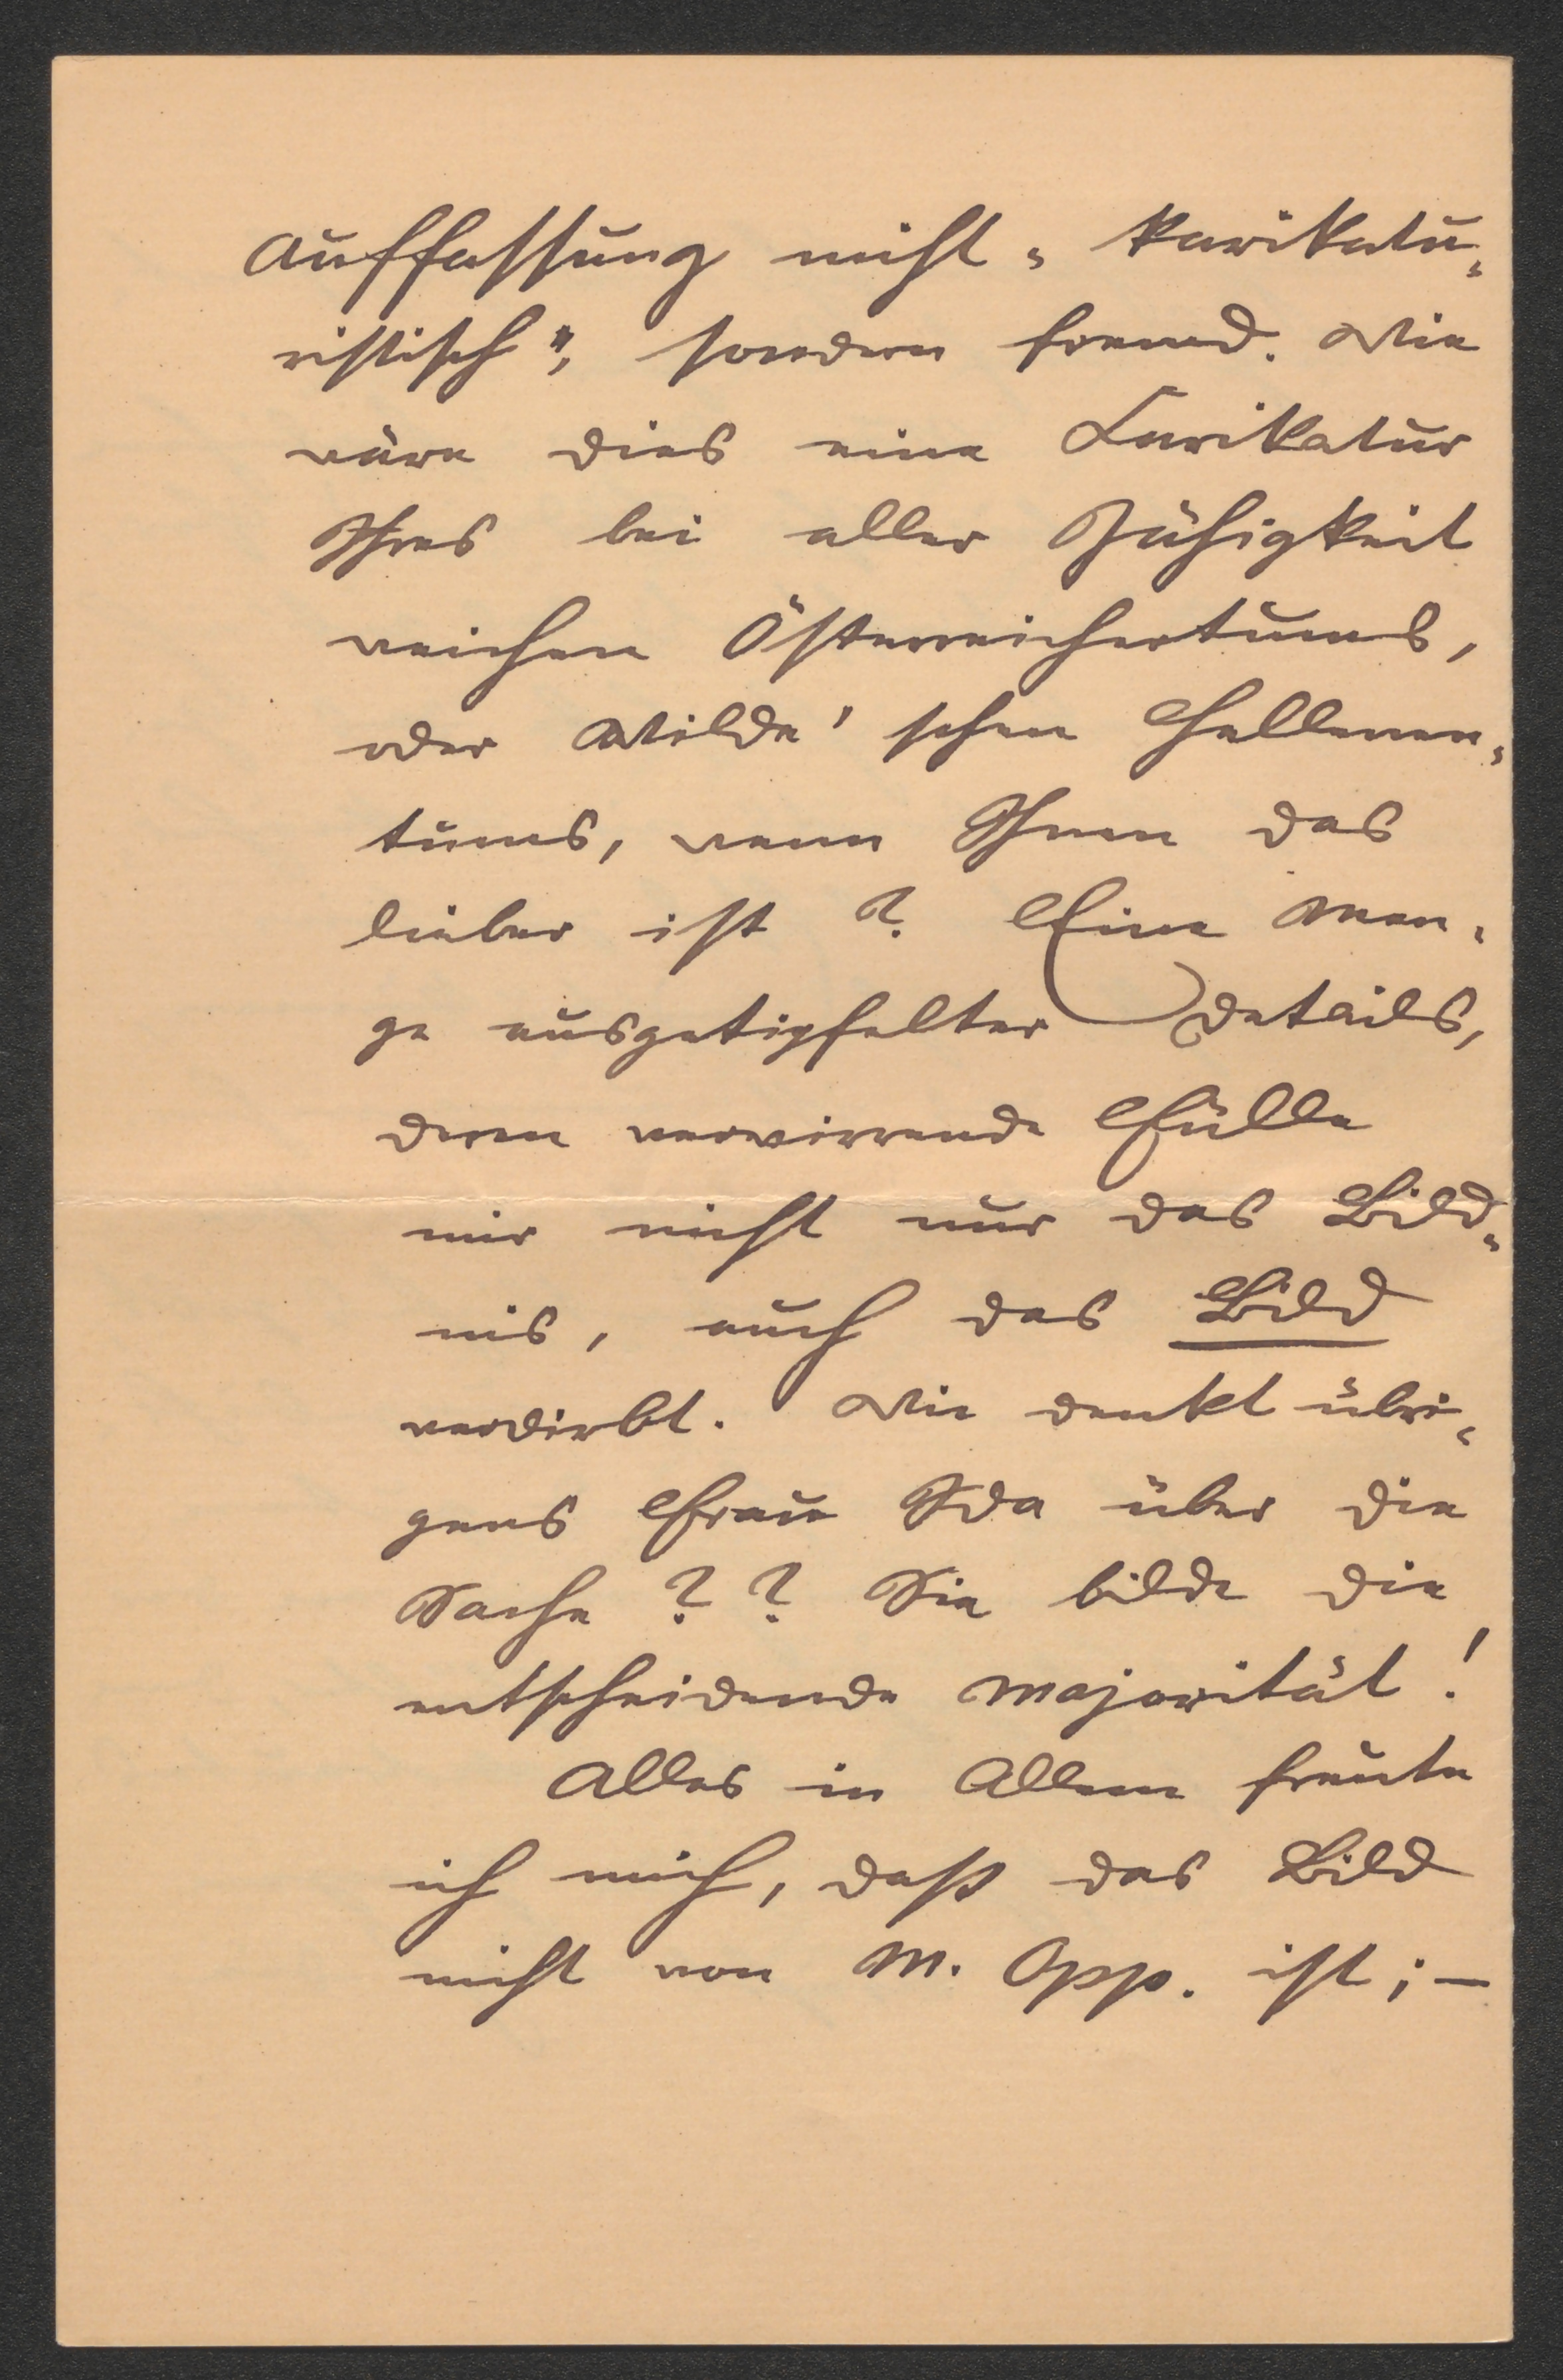 Auffassung nicht „karikatu-
ristisch", sondern fremd. Wie
wäre dies eine Karikatur
Ihres bei aller Zähigkeit
weichen Österreichertums,
oder Wilde'schen Hellenen-
tums, wenn Ihnen das
lieber ist? Eine Men-
ge ausgetipfelter Details,
deren verwirrende Fülle
mir nicht nur das Bild-
nis, auch das Bild
verdirbt. Wie denkt übri-
gens Frau Ida über die
Sache?? Sie bilde die
entscheidende Majorität!
Alles in Allem freute
ich mich, daß das Bild
nicht von M. Opp. ist; —